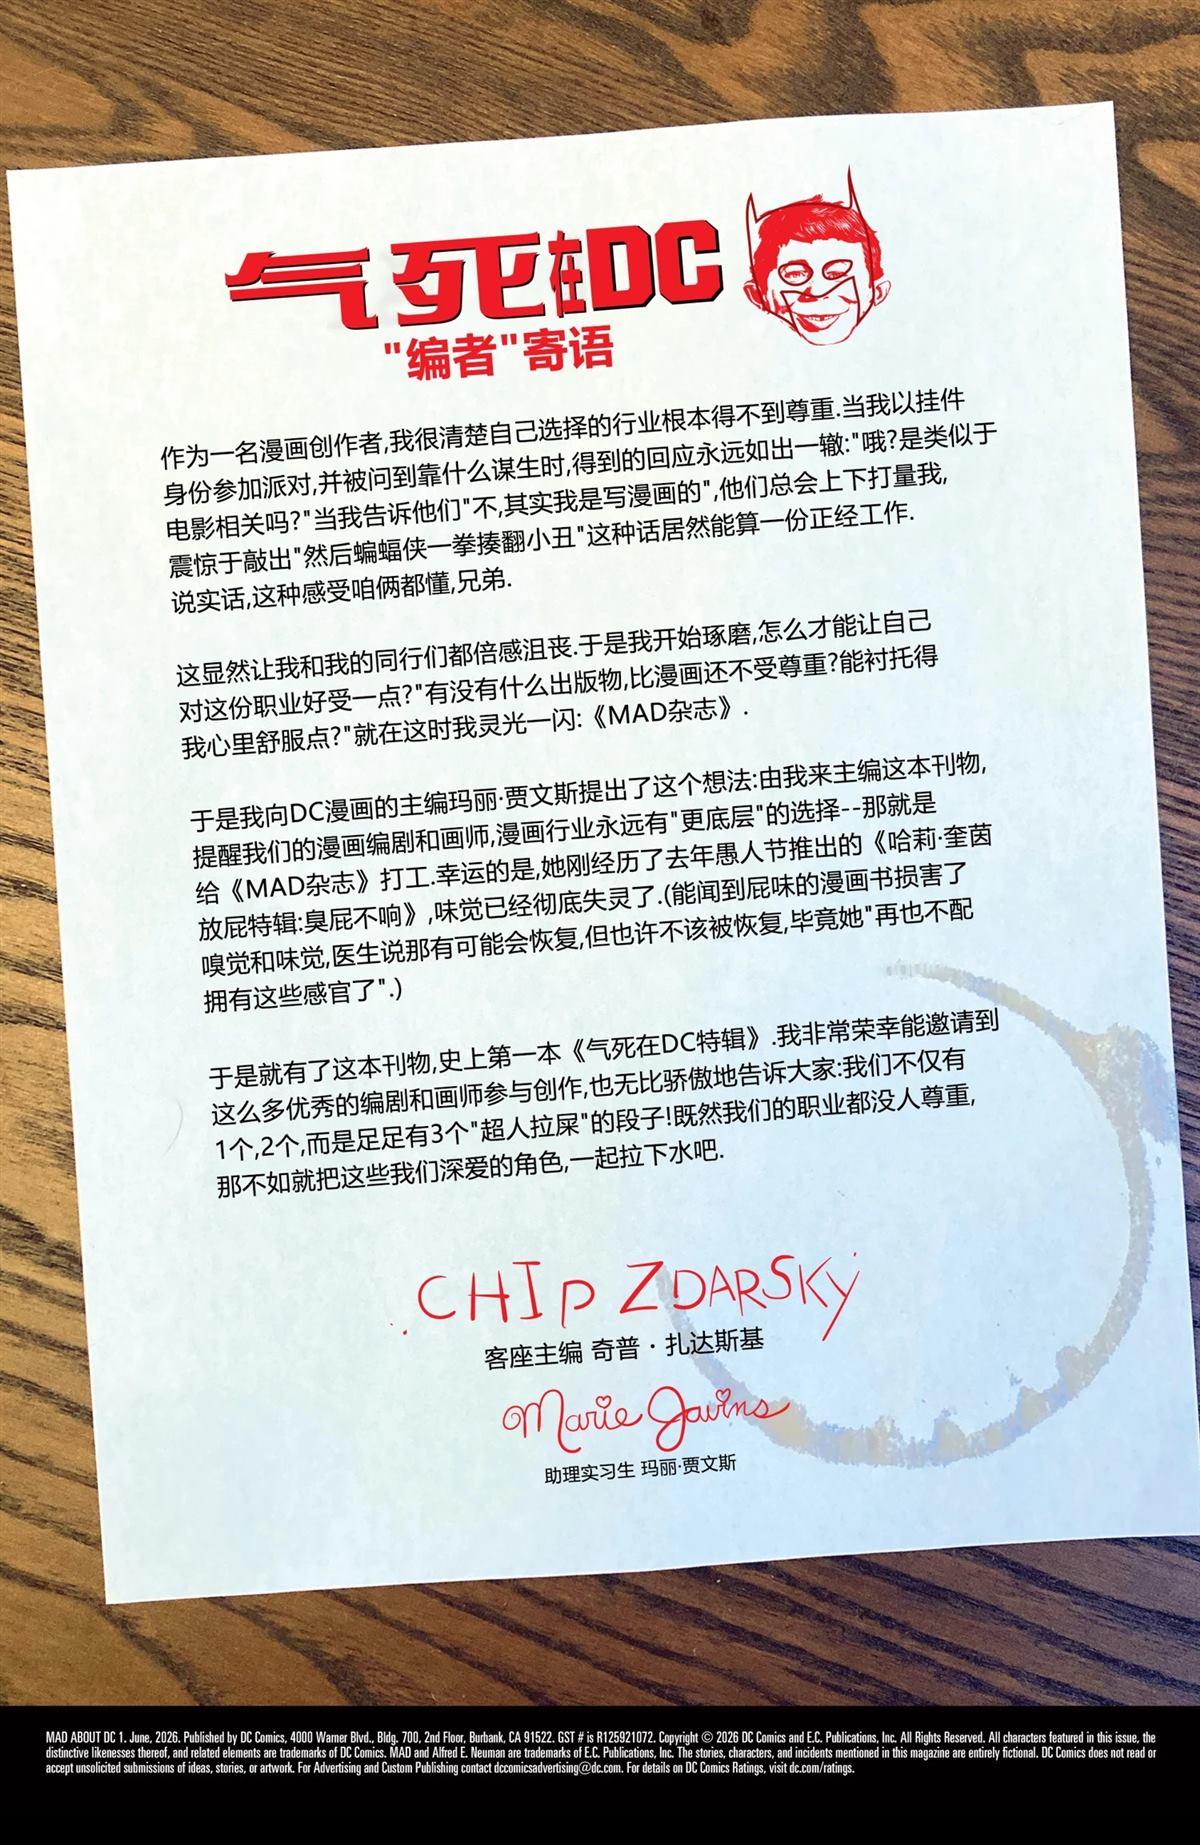 气死在DC
"编者"寄语
作为一名漫画创作者,我很清楚自己选择的行业根本得不到尊重.当我以挂件
身份参加派对,并被问到靠什么谋生时,得到的回应永远如出一辙:"哦?是类似于
电影相关吗?"当我告诉他们"不,其实我是写漫画的",他们总会上下打量我,
震惊于敲出"然后蝙蝠侠一拳揍翻小丑"这种话居然能算一份正经工作.
说实话,这种感受咱俩都懂,兄弟.
这显然让我和我的同行们都倍感沮丧.于是我开始琢磨,怎么才能让自己
对这份职业好受一点?"有没有什么出版物,比漫画还不受尊重?能衬托得
我心里舒服点?"就在这时我灵光一闪:《MAD杂志》.
于是我向DC漫画的主编玛丽·贾文斯提出了这个想法:由我来主编这本刊物,
提醒我们的漫画编剧和画师,漫画行业永远有"更底层"的选择--那就是
给《MAD杂志》打工.幸运的是,她刚经历了去年愚人节推出的《哈莉·奎茵
放屁特辑:臭屁不响》,味觉已经彻底失灵了.(能闻到屁味的漫画书损害了
嗅觉和味觉,医生说那有可能会恢复,但也许不该被恢复,毕竟她"再也不配
拥有这些感官了".)
于是就有了这本刊物,史上第一本《气死在DC特辑》.我非常荣幸能邀请到
这么多优秀的编剧和画师参与创作,也无比骄傲地告诉大家:我们不仅有
1个,2个,而是足足有3个"超人拉屎"的段子!既然我们的职业都没人尊重,
那不如就把这些我们深爱的角色,一起拉下水吧.
CHIP ZDARSKY
客座主编 奇普·扎达斯基
Marie Javins
助理实习生 玛丽·贾文斯
MAD ABOUT DC 1. June, 2026. Published by DC Comics, 4000 Warner Blvd., Bldg. 700, 2nd Floor, Burbank, CA 91522. GST # is R125921072. Copyright © 2026 DC Comics and E.C. Publications, Inc. All Rights Reserved. All characters featured in this issue, the
distinctive likenesses thereof, and related elements are trademarks of DC Comics. MAD and Alfred E. Neuman are trademarks of E.C. Publications, Inc. The stories, characters, and incidents mentioned in this magazine are entirely fictional. DC Comics does not read or
accept unsolicited submissions of ideas, stories, or artwork. For Advertising and Custom Publishing contact dccomicsadvertising@dc.com. For details on DC Comics Ratings, visit dc.com/ratings.